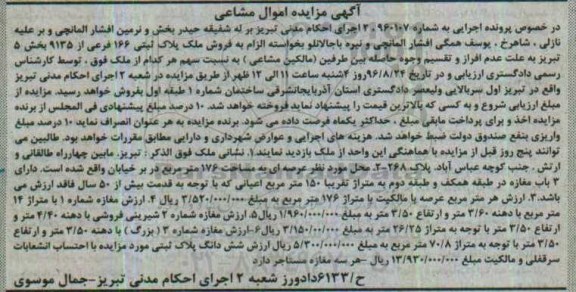 آگهی مزایده اموال مشاعی
در خصوص پرونده اجرایی به شماره ۹۶۰۱۰۷/۲ اجرای احکام مدنی تبریز بر له شفیقه حیدر بخش و نرمین افشار المانچی و بر علیه
نازلی ، شاهرخ ، یوسف همگی افشار المانچی و نیره باجالانلو بخواسته الزام به فروش ملک پلاک ثبتی ۱۶۶ فرعی از ۹۱۳۵ بخش ۵
تبریز به علت عدم افراز و تقسیم وجوه حاصله بین طرفین (مالکین مشاعی ) به نسبت سهم هر کدام از ملک فوق ، توسط کارشناس
رسمی دادگستری ارزیابی و در تاریخ ۹۶/۸/۲۴ روز ۴شنبه ساعت ۱۱ الی ۱۲ ظهر از طریق مزایده در شعبه ۲ اجرای احکام مدنی تبریز
واقع در تبریز اول سربالایی ولیعصر دادگستری استان آذربایجانشرقی ساختمان شماره ۱ طبقه اول بفروش خواهد رسید. مزایده از
مبلغ ارزیابی شروع و به کسی که بالاترین قیمت را پیشنهاد نماید فروخته خواهد شد. ۱۰ درصد مبلغ پیشنهادی فی المجلس از برنده
مزایده اخذ و برای پرداخت مابقی مبلغ ، حداکثر یکماه فرصت داده می شود. برنده مزایده به هر عنوان انصراف نماید ۱۰ درصد مبلغ
واریزی بنفع صندوق دولت ضبط خواهد شد. هزینه های اجرایی و عوارض شهرداری و دارایی مطابق مقررات خواهد بود. طالبین می
توانند پنج روز قبل از مزایده با هماهنگی این واحد از ملک بازدید نمایند.۱. نشانی ملک فوق الذکر : تبریز. مابین چهارراه طالقانی و
ارتش . جنب کوچه عباس آباد. پلاک ۲۶۸ ۲. محل مورد نظر عرصه ای به مساحت ۱۷۶ متر مربع در بر خیابان واقع شده است. دارای
۳ باب مغازه در طبقه همکف و طبقه دوم به متراژ تقریبا ۱۵۰ متر مربع اعیانی که با توجه به قدمت بیش از ۵۰ سال فاقد ارزش می
باشد.۳. ارزش هر متر مربع عرصه با مالکیت با متراژ ۱۷۶ متر مربع به مبلغ ۳/۵۲۰/۰۰۰/۰۰۰ ریال ۴. ارزش مغازه شماره ۱ با متراژ ۱۴
متر مربع با دهنه ۳/۶۰ متر و ارتفاع ۳/۵۰ متر به مبلغ ۱/۹۶۰/۰۰۰/۰۰۰ ریال۵. ارزش مغازه شماره ۲ شیرینی فروشی با دهنه ۴/۴۰ متر و
ارتفاع ۳/۵۰ متر با توجه به متراژ ۲۶/۲۵ متر به مبلغ ۳/۱۵۰/۰۰۰/۰۰۰ ریال۶-ارزش مغازه شماره ۳ (بزرگ ) با دهنه ۳/۵۰ متر و ارتفاع
۳/۵۰ متر با توجه به متراژ ۷۰/۸ متر مربع به مبلغ ۵/۳۰۰/۰۰۰/۰۰۰ ریال ارزش شش دانگ پلاک ثبتی مورد مزایده با احتساب انشعابات
سرقفلی و مالکیت مبلغ ۱۳/۹۳۰/۰۰۰/۰۰۰ ریال -هر سه مغازه مستاجر دارد
ح/۶۱۳۳ دادورز شعبه ۲ اجرای احکام مدنی تبریز-جمال موسوی